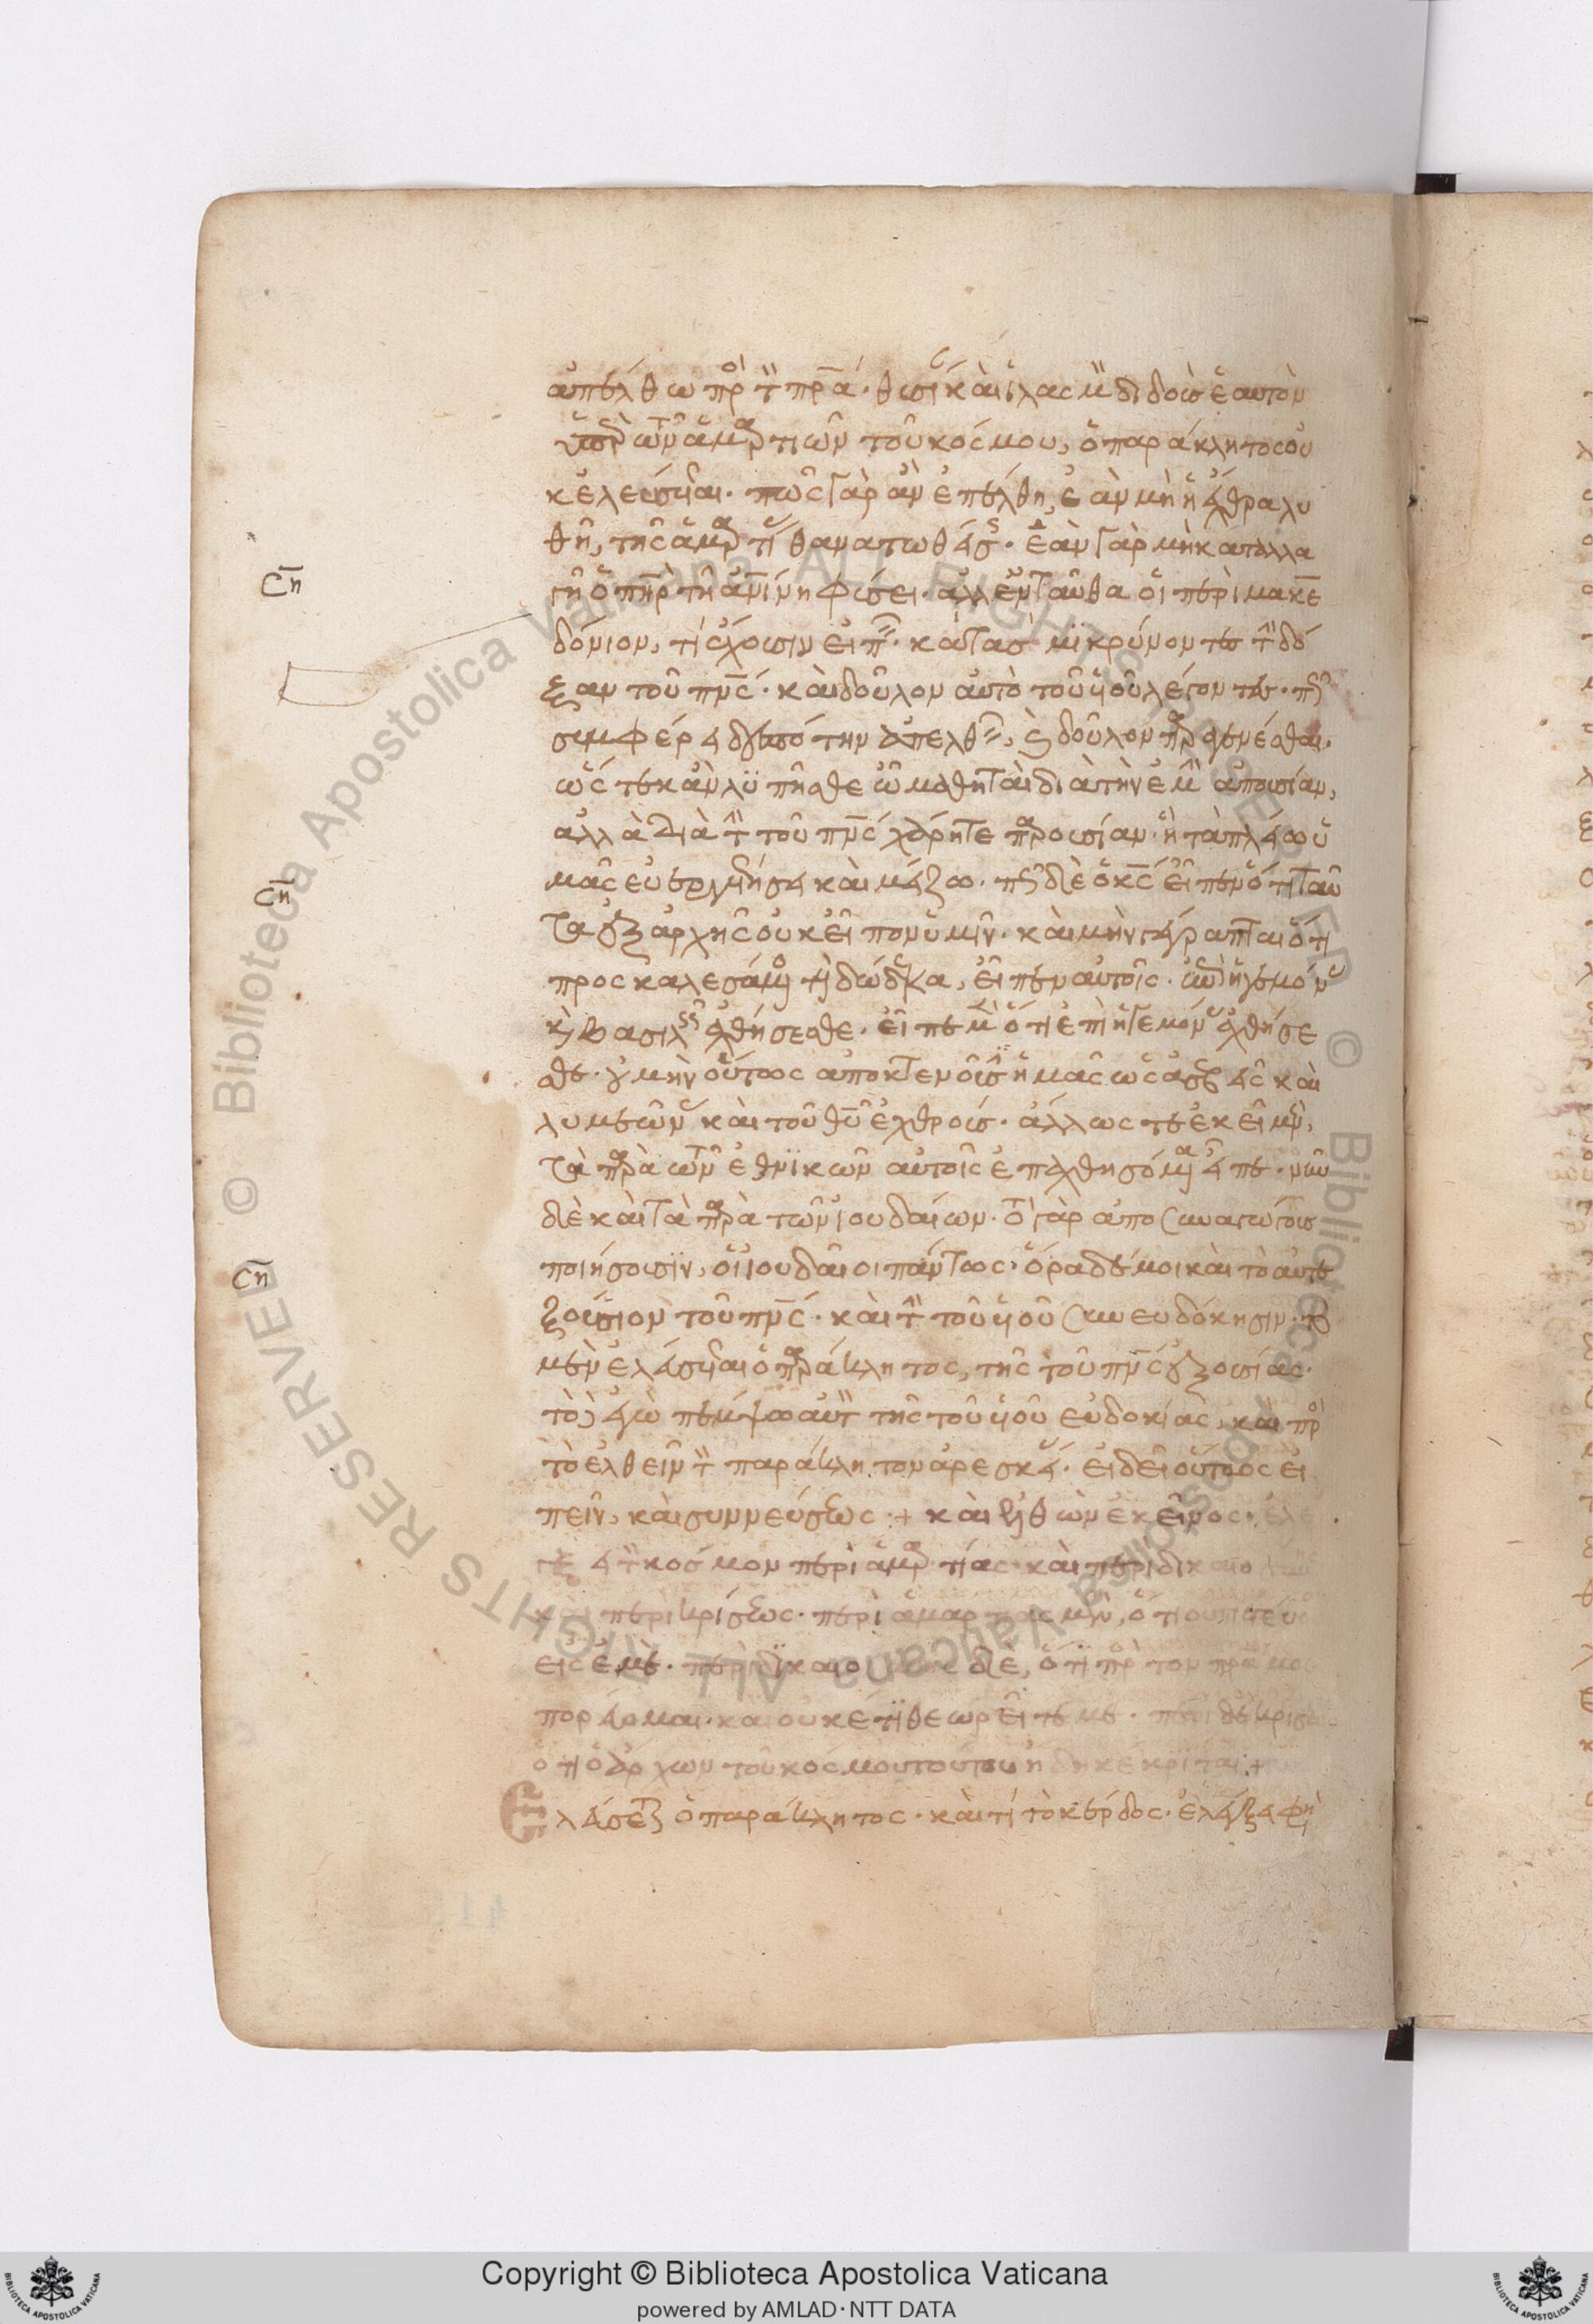 ἀπέλθω πρὸς τὸν πρα. θυσίαν καὶ ἱλασμὸν διδοὺς ἑαυτὸν
ὑπὲρ τῶν ἁμαρτιῶν τοῦ κόσμου, ὁ παράκλητος οὐ
κ ἐλεύσεται. πῶς γὰρ ἂν ἐπέλθη, ἐὰν μὴ ἡ ἔχθρα λυ
θῆ, τῆς ἁμαρτίας θανατωθείσης. ἐὰν γὰρ μὴ καταλλα
γῆ ὁ πηρ τῆ ἀνίνη φύσει. ἀλλ' ἐνταῦθα οἱ περὶ μακε
δόνιον, τί ἔχουσιν εἰπεῖν. κατασμικρύνοντες τὴν δό
ξαν τοῦ πνς. καὶ δοῦλον αὐτὸ τοῦ υἱοῦ λέγοντες. πῶς
συμφέρει δεσπότην ἀπελθεῖν, καὶ δοῦλον παραγενέσθαι.
ὥστε κἂν λυπῆσθε ὦ μαθηταὶ διὰ τὴν ἐμὴν ἀπουσίαν,
ἀλλὰ διὰ τὴν τοῦ πνς χαίρητε παρουσίαν. ἢ τὰ πλείω ὑ
μᾶς εὐεργετήσει καὶ μείζω. πῶς δὲ ὁ κς εἶπεν ὅτι ταῦ
τα ἐξ ἀρχῆς οὐκ εἶπον ὑμῖν. καὶ μὴν γέγραπται ὅτι
προσκαλεσάμενος τοὺς δώδεκα, εἶπεν αὐτοῖς. ἐπὶ ἡγεμόνας
καὶ βασιλεῖς ἀχθήσεσθε. εἶπε μὲν ὅτι ἐπὶ ἡγεμόνας ἀχθήσε
σθε. οὐ μὴν οὕτως ἀποκτενοῦσιν ἡμᾶς ὡς ἀσεβεῖς καὶ
λυμεῶνας καὶ τοῦ θυ ἐχθρούς. ἄλλως τε ἐκεῖ μὲν,
τὰ παρὰ τῶν ἐθνικῶν αὐτοῖς ἐπαχθησόμενα εἶπε. νῦν
δὲ καὶ τὰ παρὰ τῶν ἰουδαίων. τὸ γὰρ ἀποσυναγώγους
ποιήσουσιν, οἱ ἰουδαῖοι πάντως. ὅρα δέ μοι καὶ τὸ αὐτε
ξούσιον τοῦ πνς. καὶ τὴν τοῦ υἱοῦ συνευδόκησιν. τὸ
μὲν ἐλεύσεται ὁ παράκλητος, τῆς τοῦ πνς ἐξουσίας.
τὸ, ἐγὼ πέμψω αὐτὸν τῆς τοῦ υἱοῦ εὐδοκίας, καὶ πρὸς
τὸ ἐλθεῖν τὸν παράκλητον ἀρεσκείας. εἰ δεῖ οὕτως εἰ
πεῖν, καὶ συννεύσεως. + καὶ ἐλθὼν ἐκεῖνος. ἐλέ
γξει τὸν κόσμον περὶ ἁμαρτίας. καὶ περὶ δικαιο
καὶ περὶ κρίσεως. περὶ ἁμαρτίας μὲν, ὅτι οὐ πιστεύ
εἰς ἐμέ. περὶ δικαιοσύνης δὲ, ὅτι πρὸς τὸν πρα μου
πορεύομαι. καὶ οὐκέτι θεωρεῖτέ με. περὶ δὲ κρίσεως
ὅτι ὁ ἄρχων τοῦ κόσμου τούτου ἤδη κέκριται. +
Ἐλεύσεται ὁ παράκλητος. καὶ τί τὸ κέρδος. ἐλέγξει φησὶ
ση
ση
ση
Copyright © Biblioteca Apostolica Vaticana
powered by AMLAD·NTT DATA